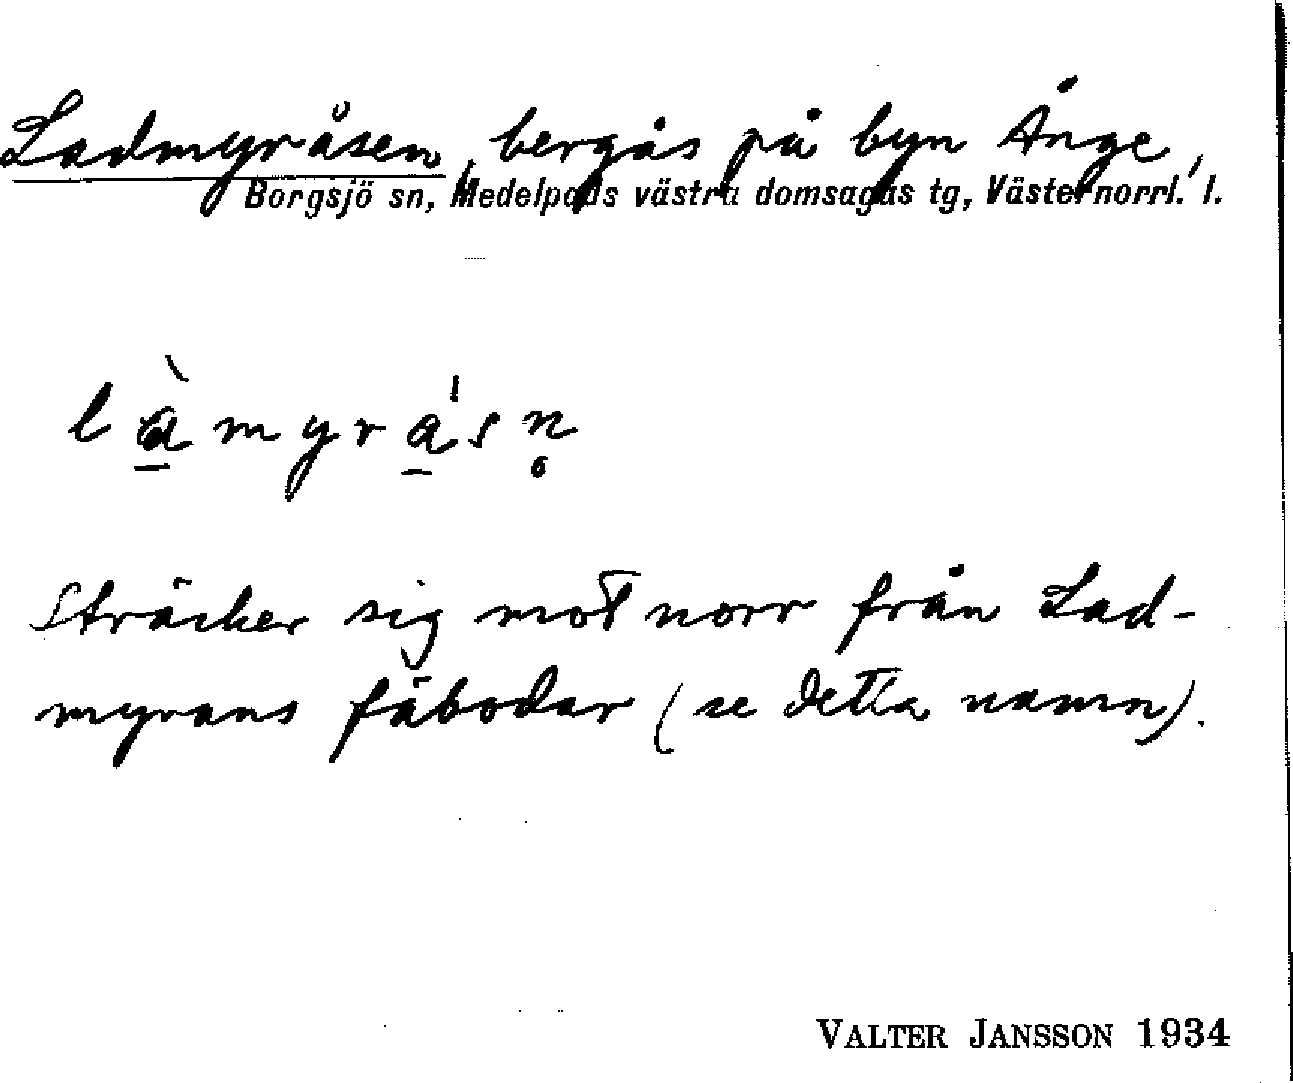 Ladmyråsen, bergås på byn Ånge,
Borgsjö sn, Medelpads västra domsagas tg, Västernorrl. l.
là̱myra̱'sn̥
Sträcker sig mot norr från Lad-
myrans fäbodar (se detta namn).
VALTER JANSSON 1934